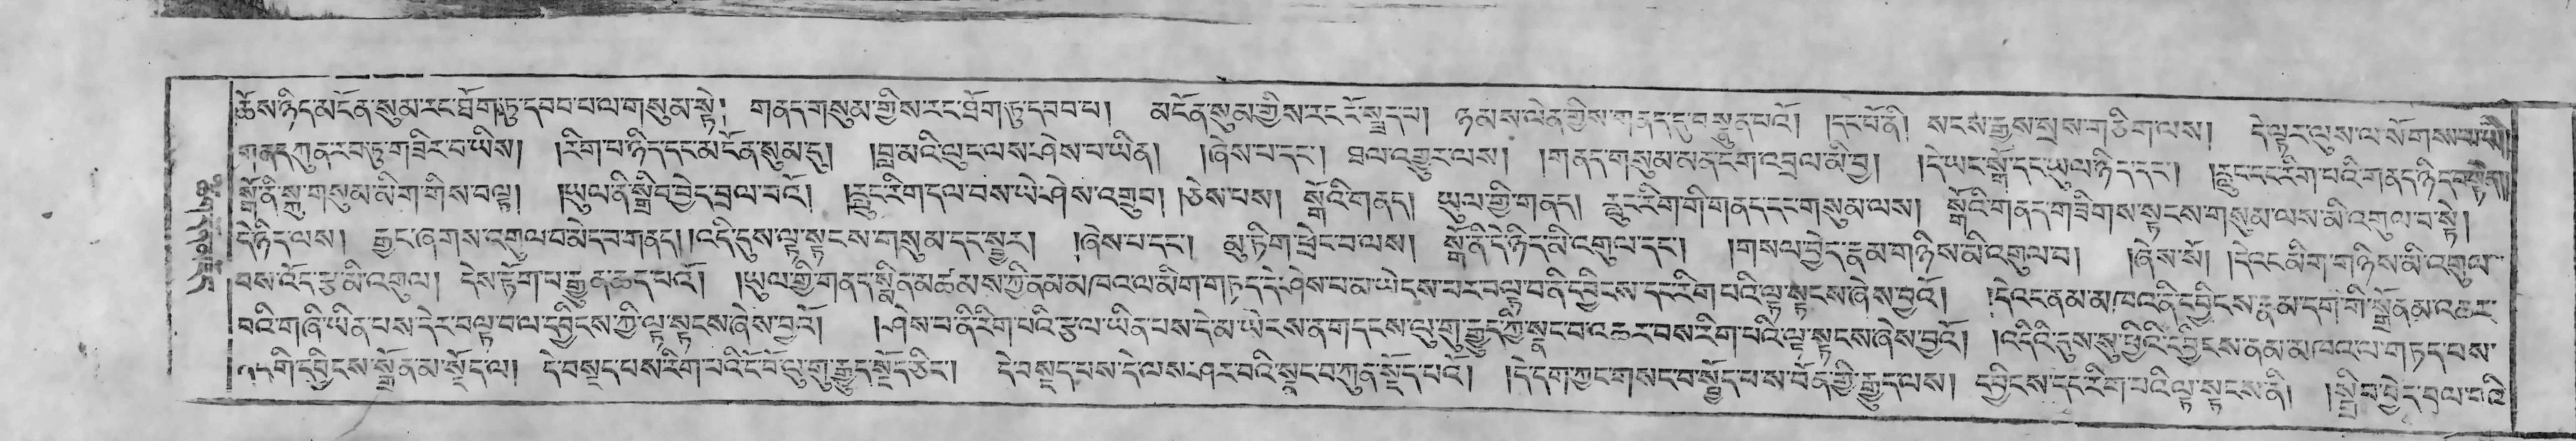 ཆོས་ཉིད་མངོན་སུམ་རང་ཐོག་ཏུ་དབབ་པ་ལ་གསུམ་སྟེ། གནད་གསུམ་གྱིས་རང་ཐོག་ཏུ་དབབ་པ། མངོན་སུམ་གྱིས་རང་ངོ་སྤྲད་པ། ཉམས་ལེན་གྱིས་གནད་དུ་བསྣུན་པའོ། །དང་པོ་ནི། སངས་རྒྱས་སྲས་གཅིག་ལས། དེ་ལྟར་ལུས་ལ་སོགས་པ་ཡི།
གནད་ཀུན་རབ་ཏུ་གཟིར་བ་ཡིས། །རིག་པ་ཉིད་དང་མངོན་སུམ་དུ། །བླ་མའི་ལུང་ལས་ཤེས་པ་ཡིན། །ཞེས་པ་དང་། ཐལ་འགྱུར་ལས། །གནད་གསུམ་མན་ངག་འབྲལ་མི་བྱ། །དེ་ཡང་སྒོ་དང་ཡུལ་ཉིད་དང་། །རླུང་དང་རིག་པའི་གནད་ཉིད་བསྟེན།
སྒོ་ནི་སྐུ་གསུམ་མིག་གིས་བལྟ། །ཡུལ་ནི་སྒྲིབ་བྱེད་བྲལ་བའོ། །རླུང་རིག་དལ་བས་ཡེ་ཤེས་འགྲུབ། །ཅེས་པས། སྒོའི་གནད། ཡུལ་གྱི་གནད། རླུང་རིག་གི་གནད་དང་གསུམ་ལས། སྒོའི་གནད་གཟིགས་སྟངས་གསུམ་ལས་མི་འགུལ་བ་སྟེ།
དེ་ཉིད་ལས། རྒྱང་ཞགས་འགུལ་བ་མེད་པ་གནད། །འདི་དུས་ལྟ་སྟངས་གསུམ་དང་སྦྱར། །ཞེས་པ་དང་། མུ་ཏིག་ཕྲེང་བ་ལས། སྒོ་ནི་དེ་ཉིད་མི་འགུལ་དང་། །གསལ་བྱེད་རྣམ་གཉིས་མི་འགུལ་བ། །ཞེས་སོ། །དེ་འང་མིག་གཉིས་མི་འགུལ་
བས་འོད་རྩ་མི་འགུལ། དེས་རྟོག་པ་རྒྱུན་ཆད་པའོ། །ཡུལ་གྱི་གནད་སྨིན་མཚམས་ཀྱི་ནམ་མཁའ་ལ་མིག་གཏད་དེ་ཤེས་པ་མ་ཡེངས་པར་བལྟ་བ་ནི་དབྱིངས་དང་རིག་པའི་ལྟ་སྟངས་ཞེས་བྱའོ། །དེ་འང་ནམ་མཁའ་ནི་དབྱིངས་རྣམ་དག་གི་སྒྲོན་མ་འཆར་
བའི་གཞི་ཡིན་པས་དེར་བལྟ་བ་ལ་དབྱིངས་ཀྱི་ལྟ་སྟངས་ཞེས་བྱའོ། །ཤེས་པ་ནི་རིག་པའི་རྩལ་ཡིན་པས་དེ་མ་ཡེངས་ན་གདངས་ལུ་གུ་རྒྱུད་ཀྱི་སྣང་བ་འཆར་བས་རིག་པའི་ལྟ་སྟངས་ཞེས་བྱའོ། །འདིའི་དུས་སུ་ཕྱིའི་དབྱིངས་ནམ་མཁའ་ལ་གཏད་པས་
ནང་གི་དབྱིངས་སྒྲོན་མ་སྤྱོད་ལ། དེ་བསྡད་པས་རིག་པའི་ངོ་བོ་ལུ་གུ་རྒྱུད་སྡོད་ཅིང་། དེ་བསྡད་པས་དེ་ལས་ཤར་བའི་སྣང་བ་ཀུན་སྡོད་པའོ། །དེ་དག་ཀྱང་གསང་བ་སྤྱོད་པ་ས་བོན་གྱི་རྒྱུད་ལས། དབྱིངས་དང་རིག་པའི་ལྟ་སྟངས་ནི། །སྒྲིབ་བྱེད་བྲལ་བའི